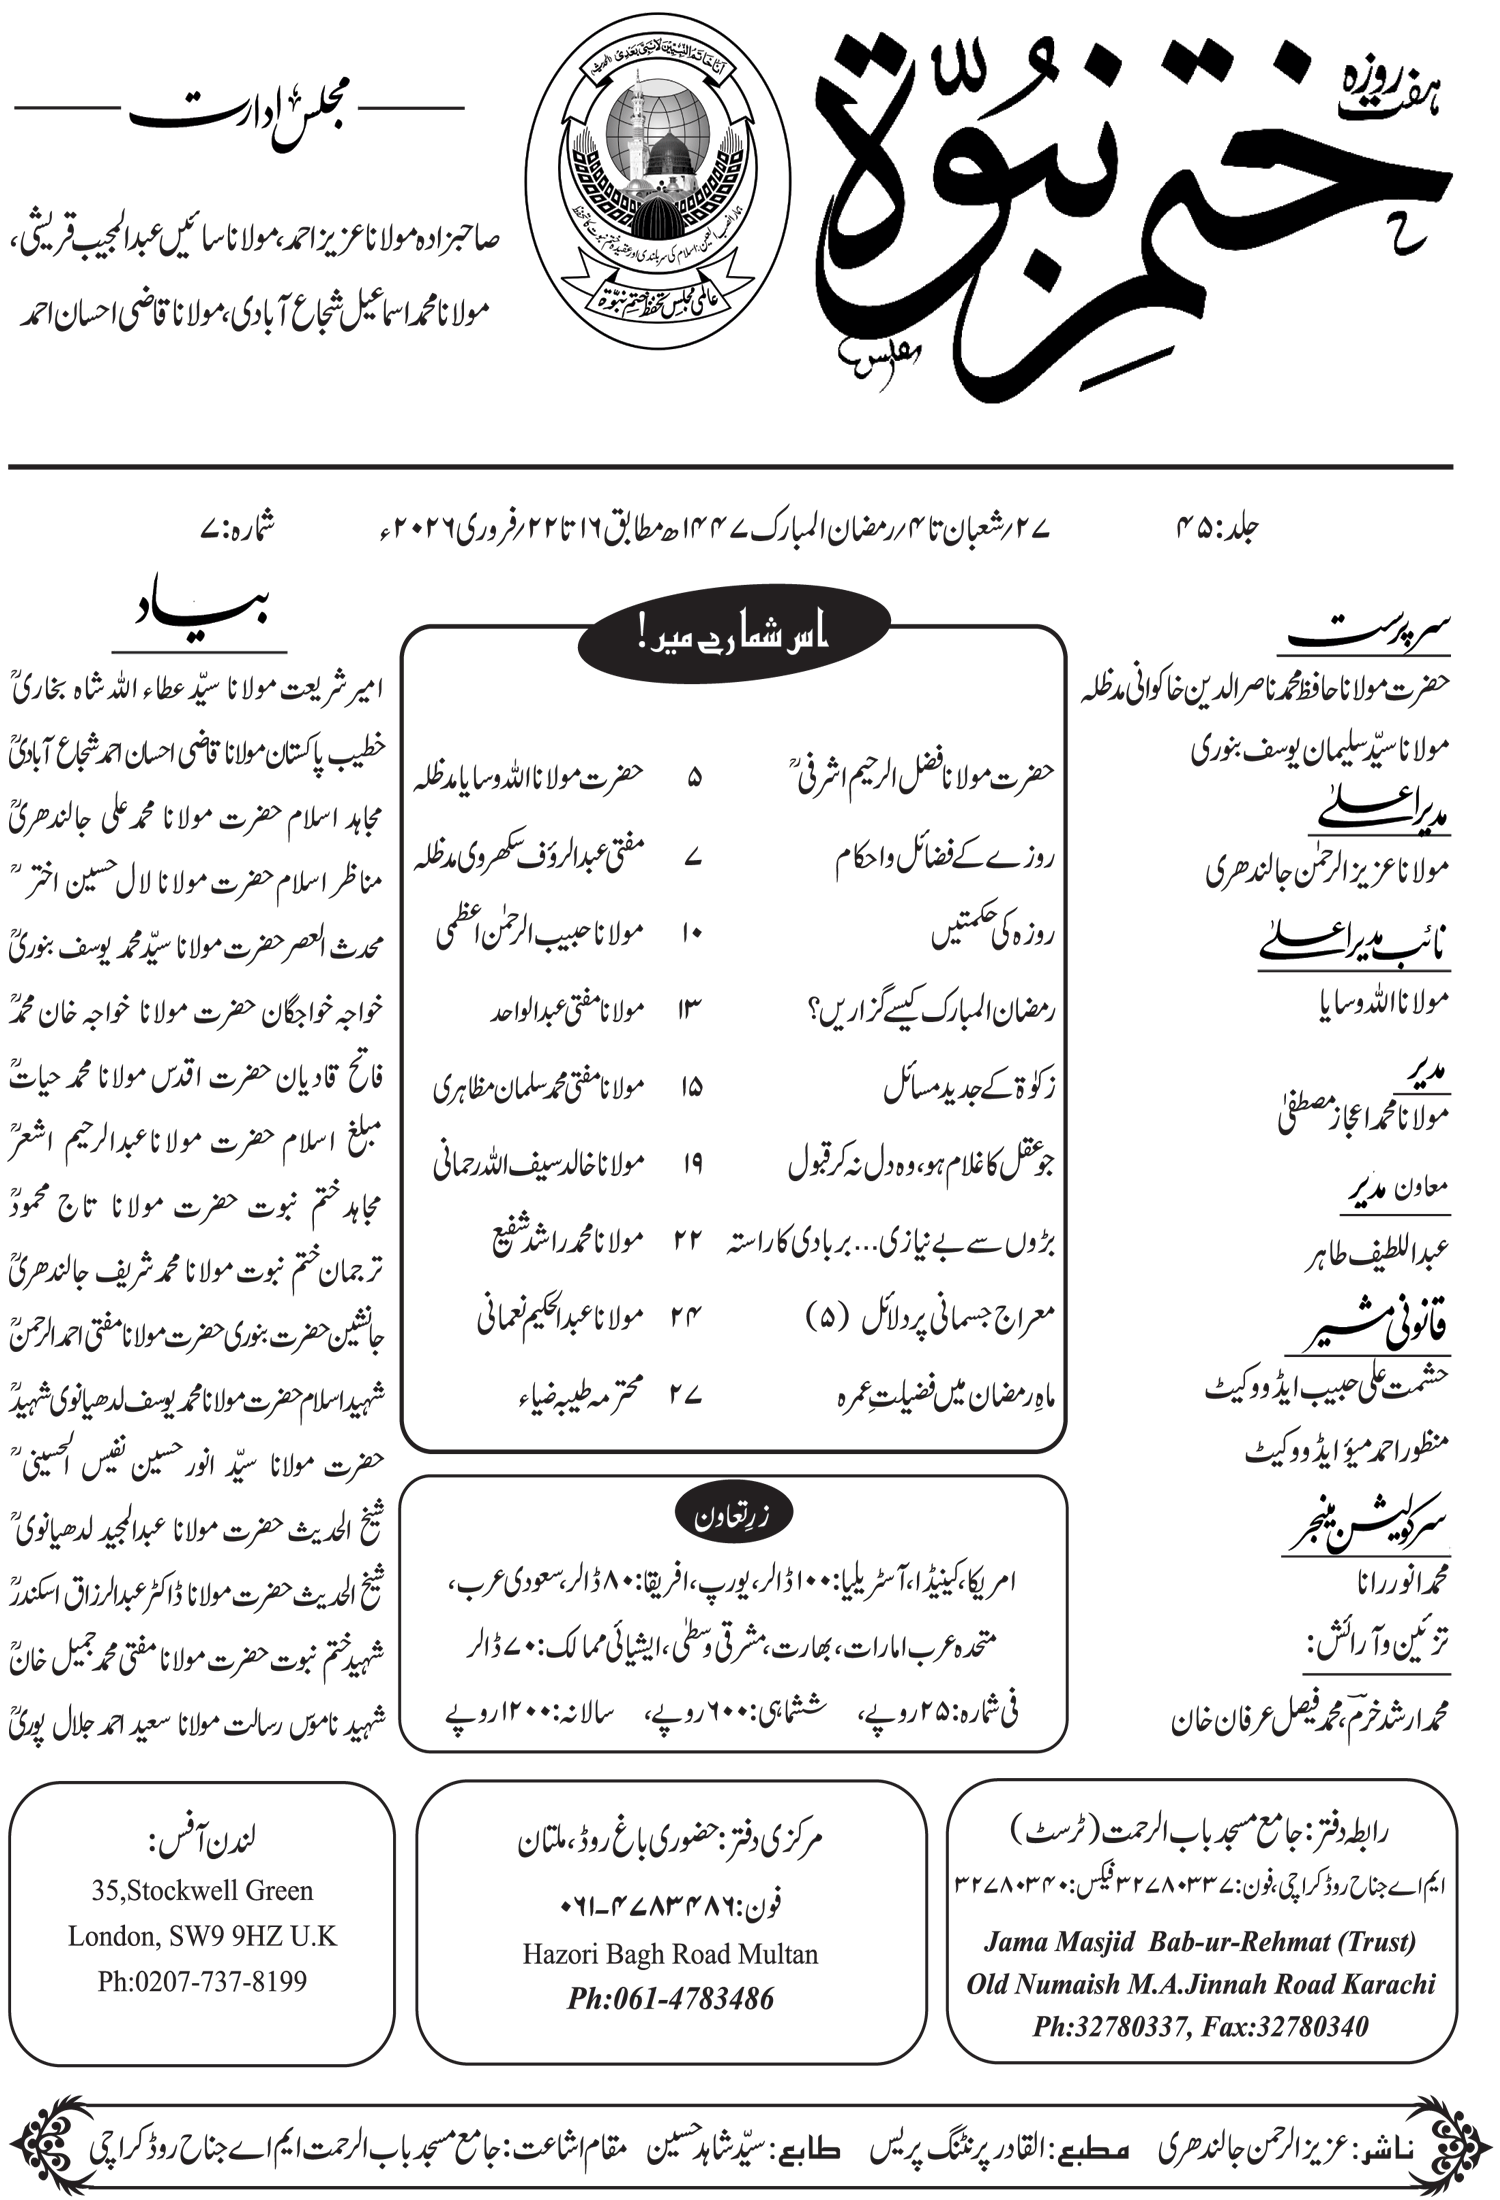 ہفت روزہ
ختم نبوۃ
انا خاتم النبیین لا نبی بعدی
عالمی مجلس تحفظ ختم نبوۃ
مجلس ادارت
صاحبزادہ مولانا عزیز احمد، مولانا سائیں عبدالمجیب قریشی،
مولانا محمد اسماعیل شجاع آبادی، مولانا قاضی احسان احمد
جلد: ۴۵
۲۷/شعبان تا ۴/رمضان المبارک ۱۴۴۷ھ مطابق ۱۶ تا ۲۲/فروری ۲۰۲۶ء
شمارہ: ۷
سرپرست
حضرت مولانا حافظ محمد ناصر الدین خاکوانی مدظلہ
مولانا سیّد سلیمان یوسف بنوری
مدیر اعلیٰ
مولانا عزیز الرحمٰن جالندھری
نائب مدیر اعلیٰ
مولانا اللہ وسایا
مدیر
مولانا محمد اعجاز مصطفیٰ
معاون مدیر
عبداللطیف طاہر
قانونی مشیر
حشمت علی حبیب ایڈووکیٹ
منظور احمد میؤ ایڈووکیٹ
سرکولیشن مینجر
محمد انور رانا
تزئین و آرائش:
محمد ارشد خرم، محمد فیصل عرفان خان
اس شمارے میں!
حضرت مولانا فضل الرحیم اشرفیؒ ۵ حضرت مولانا اللہ وسایا مدظلہ
روزے کے فضائل و احکام ۷ مفتی عبدالرؤف سکھروی مدظلہ
روزہ کی حکمتیں ۱۰ مولانا حبیب الرحمٰن اعظمی
رمضان المبارک کیسے گزاریں؟ ۱۳ مولانا مفتی عبدالواحد
زکوٰۃ کے جدید مسائل ۱۵ مولانا مفتی محمد سلمان مظاہری
جو عقل کا غلام ہو، وہ دل نہ کر قبول ۱۹ مولانا خالد سیف اللہ رحمانی
بڑوں سے بے نیازی... بربادی کا راستہ ۲۲ مولانا محمد راشد شفیع
معراج جسمانی پر دلائل (۵) ۲۴ مولانا عبدالحکیم نعمانی
ماہِ رمضان میں فضیلتِ عمرہ ۲۷ محترمہ طیبہ ضیاء
زرِ تعاون
امریکا، کینیڈا، آسٹریلیا: ۱۰۰ ڈالر، یورپ، افریقا: ۸۰ ڈالر، سعودی عرب،
متحدہ عرب امارات، بھارت، مشرقِ وسطیٰ، ایشیائی ممالک: ۷۰ ڈالر
فی شمارہ: ۲۵ روپے، ششماہی: ۶۰۰ روپے، سالانہ: ۱۲۰۰ روپے
بیاد
امیر شریعت مولانا سیّد عطاء اللہ شاہ بخاریؒ
خطیب پاکستان مولانا قاضی احسان احمد شجاع آبادیؒ
مجاہد اسلام حضرت مولانا محمد علی جالندھریؒ
مناظر اسلام حضرت مولانا لال حسین اخترؒ
محدث العصر حضرت مولانا سیّد محمد یوسف بنوریؒ
خواجہ خواجگان حضرت مولانا خواجہ خان محمدؒ
فاتح قادیان حضرت اقدس مولانا محمد حیاتؒ
مبلغ اسلام حضرت مولانا عبدالرحیم اشعرؒ
مجاہد ختم نبوت حضرت مولانا تاج محمودؒ
ترجمان ختم نبوت مولانا محمد شریف جالندھریؒ
جانشین حضرت بنوری حضرت مولانا مفتی احمد الرحمنؒ
شہید اسلام حضرت مولانا محمد یوسف لدھیانوی شہیدؒ
حضرت مولانا سیّد انور حسین نفیس الحسینیؒ
شیخ الحدیث حضرت مولانا عبدالمجید لدھیانویؒ
شیخ الحدیث حضرت مولانا ڈاکٹر عبدالرزاق اسکندرؒ
شہید ختم نبوت حضرت مولانا مفتی محمد جمیل خانؒ
شہید ناموس رسالت مولانا سعید احمد جلال پوریؒ
رابطہ دفتر: جامع مسجد باب الرحمت (ٹرسٹ)
ایم اے جناح روڈ کراچی، فون: ۳۲۷۸۰۳۳۷ فیکس: ۳۲۷۸۰۳۴۰
Jama Masjid Bab-ur-Rehmat (Trust)
Old Numaish M.A.Jinnah Road Karachi
Ph:32780337, Fax:32780340
مرکزی دفتر: حضوری باغ روڈ، ملتان
فون: ۰۶۱-۴۷۸۳۴۸۶
Hazori Bagh Road Multan
Ph:061-4783486
لندن آفس:
35,Stockwell Green
London, SW9 9HZ U.K
Ph:0207-737-8199
ناشر: عزیز الرحمن جالندھری مطبع: القادر پرنٹنگ پریس طابع: سیّد شاہد حسین مقام اشاعت: جامع مسجد باب الرحمت ایم اے جناح روڈ کراچی